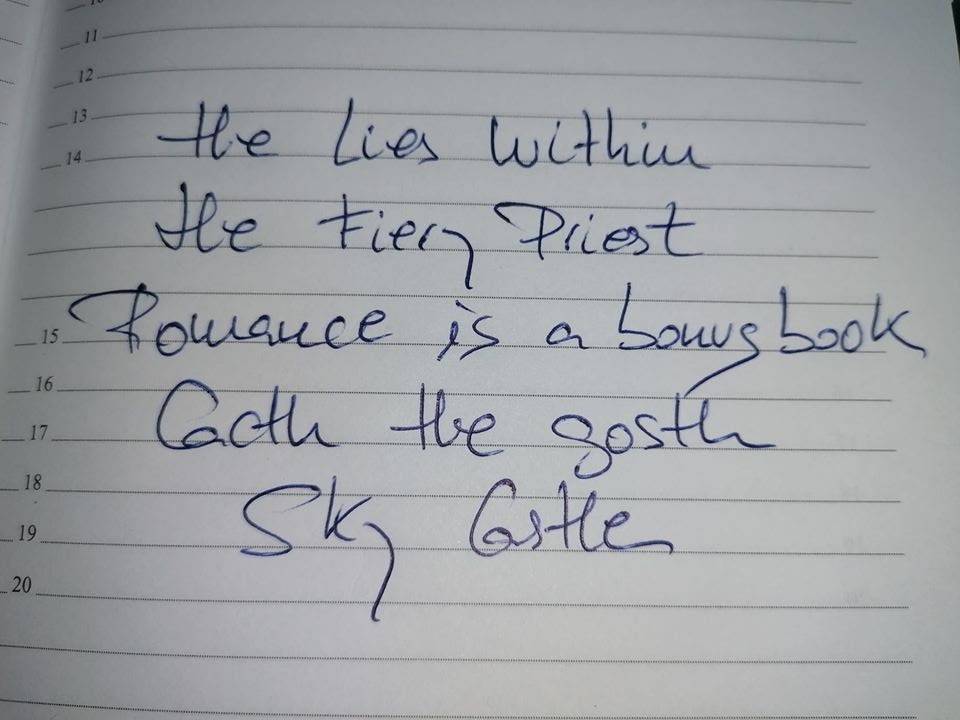 11
12
13
the Lies Within
14
the Fiery Priest
15 Romance is a bonus book
16
Cacth the gosth
17
18
Sky Castle
19
20